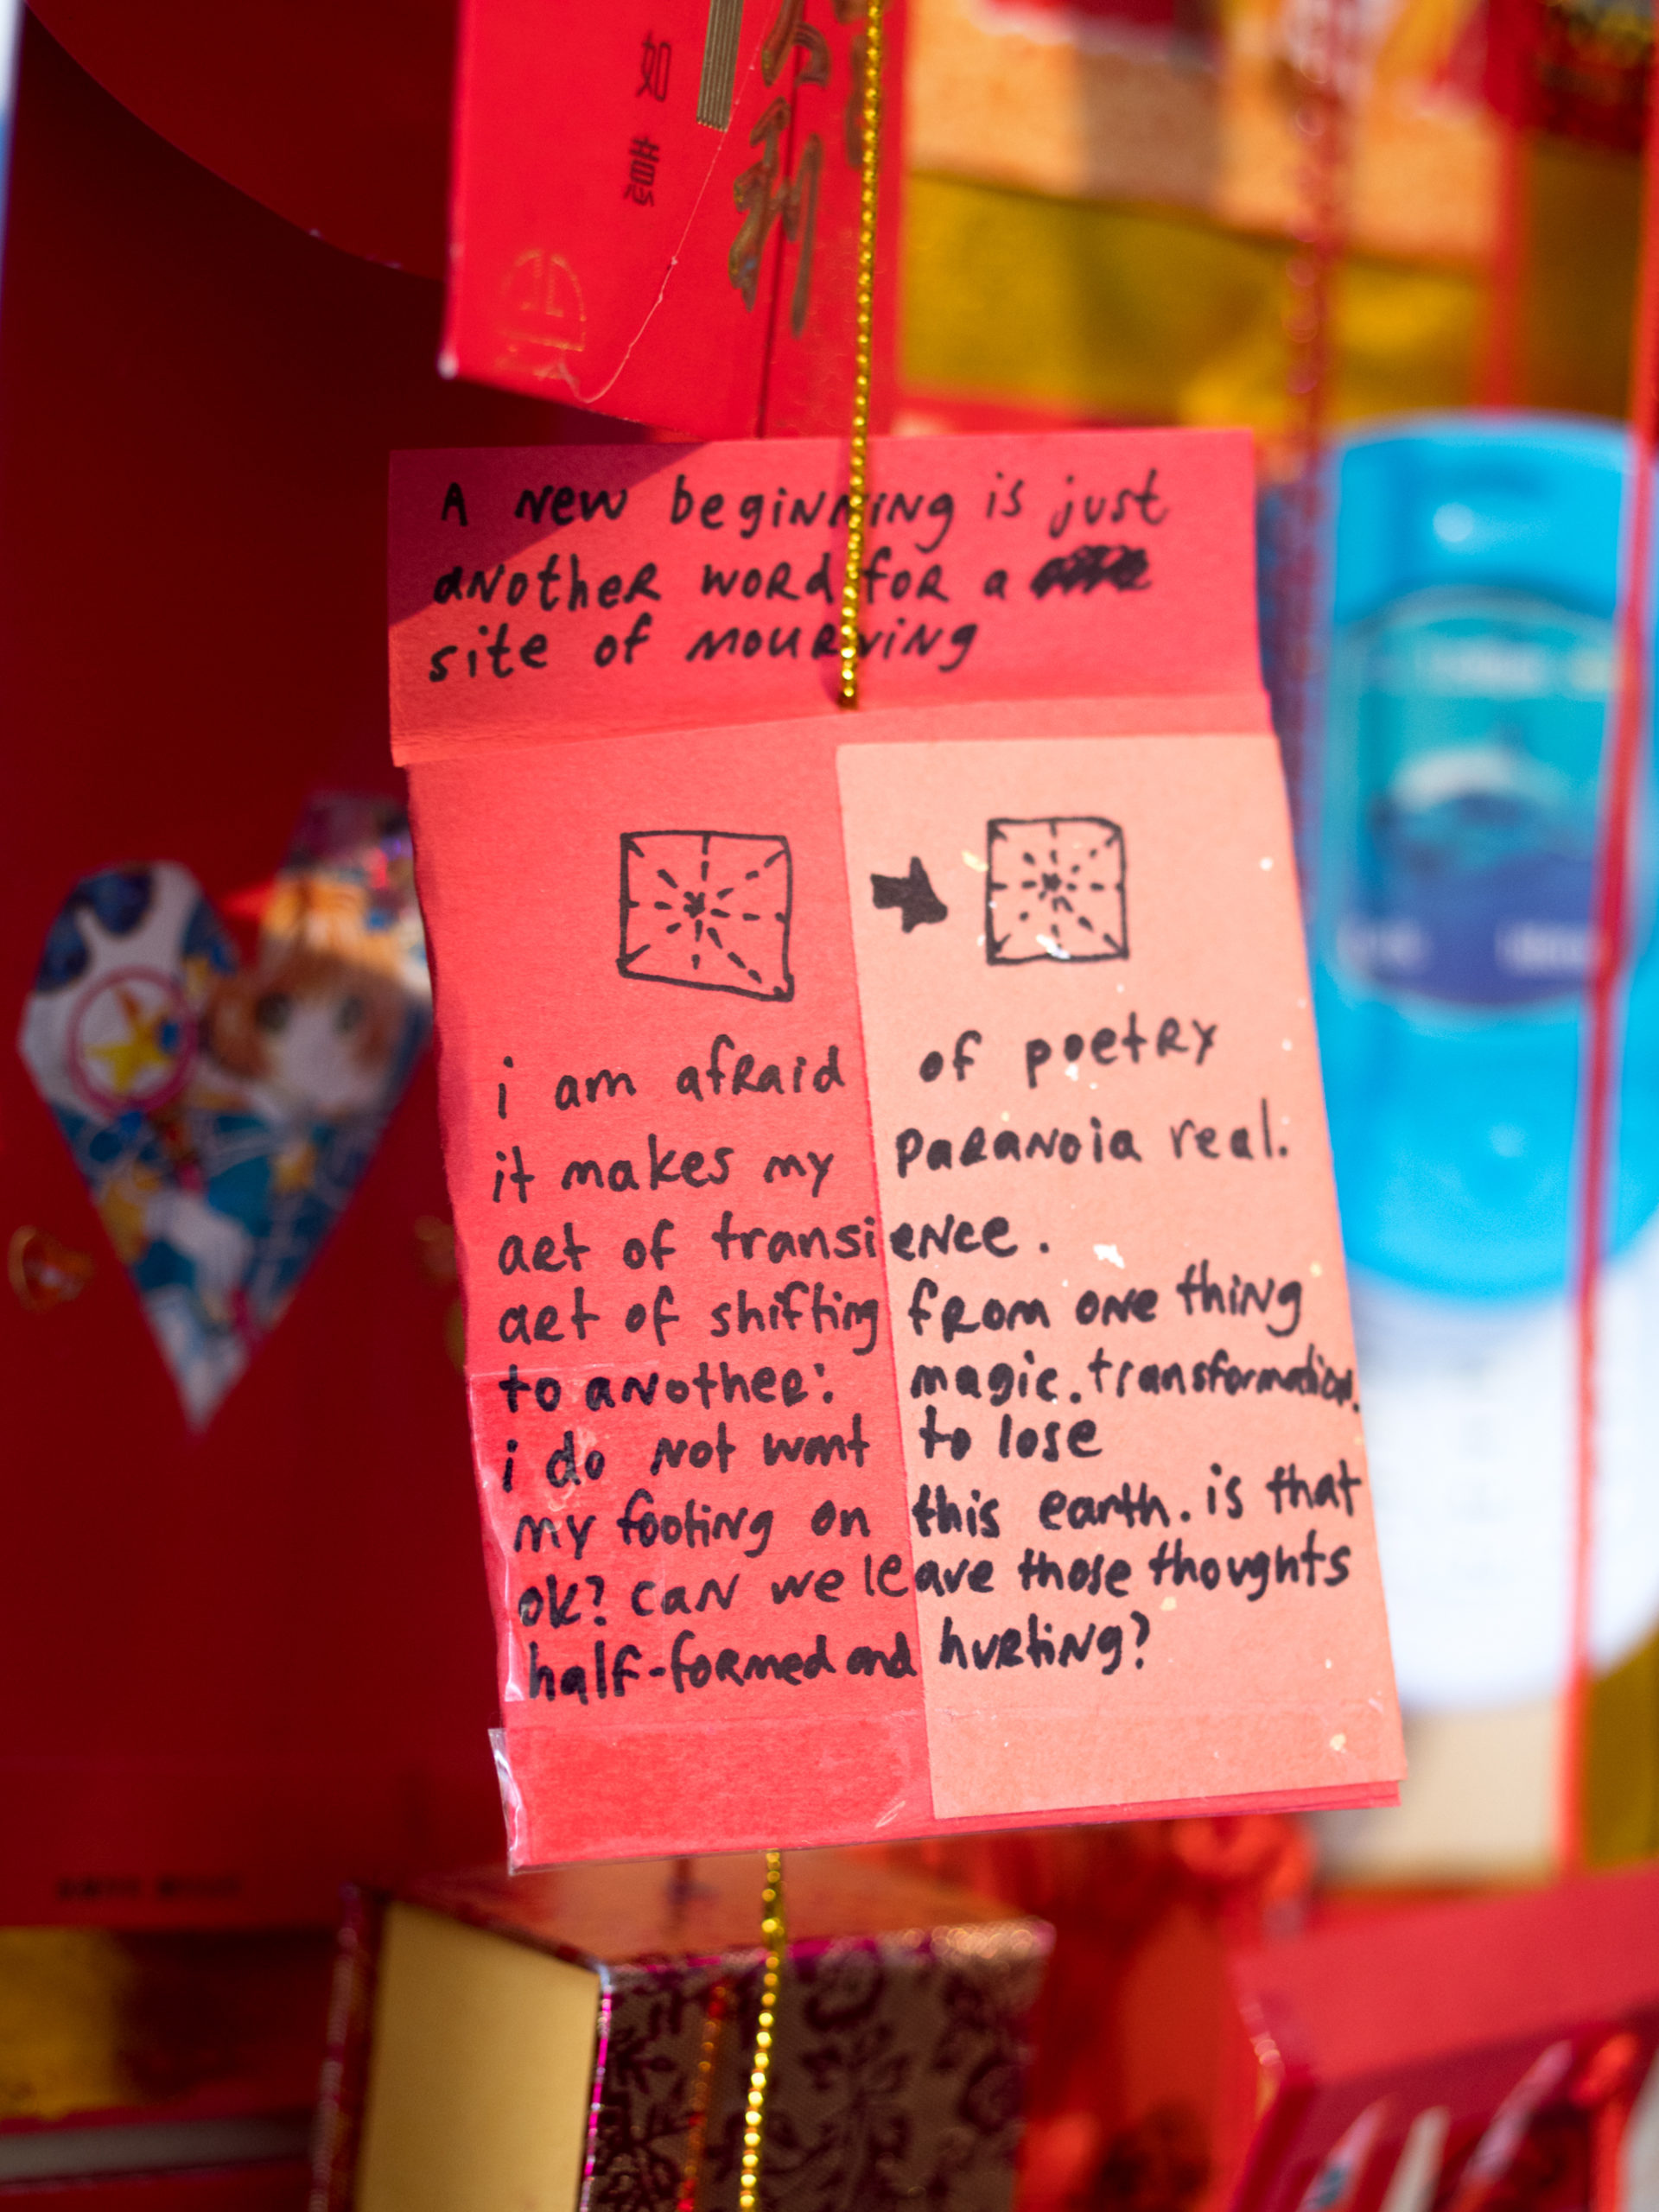 如意
利
A new beginning is just
another word for a
site of mourning
i am afraid of poetry
it makes my paranoia real.
act of transience.
act of shifting from one thing
to another: magic. transformation.
i do not want to lose
my footing on this earth. is that
ok? can we leave those thoughts
half-formed and hurting?